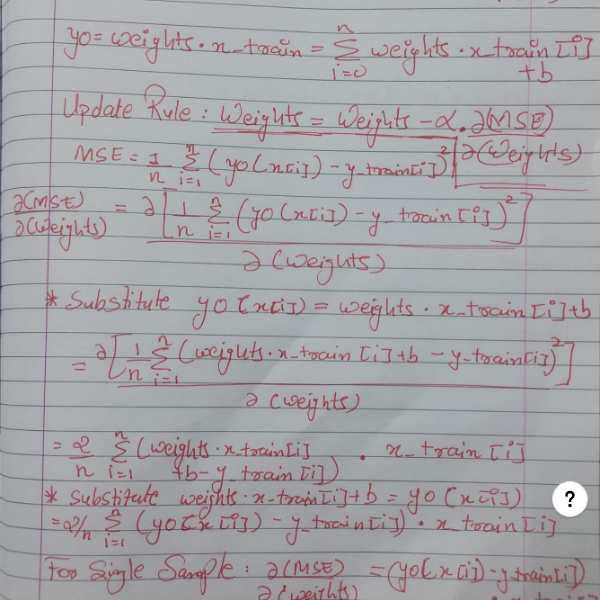 yo = weights · x_train = Σ_{i=0}^{n} weights · x_train[i] + b
Update Rule : Weights = Weights - α · ∂(MSE) / ∂(Weights)
MSE = 1/n Σ_{i=1}^{n} (yo(x[i]) - y_train[i])²
∂(MSE) / ∂(Weights) = ∂[1/n Σ_{i=1}^{n} (yo(x[i]) - y_train[i])²] / ∂(weights)
* Substitute yo[x[i]) = weights · x_train[i] + b
= ∂[1/n Σ_{i=1}^{n} (weights · x_train[i] + b - y_train[i])²] / ∂(weights)
= 2/n Σ_{i=1}^{n} (weights · x_train[i] + b - y_train[i]) · x_train[i]
* Substitute weights · x_train[i] + b = yo(x[i])
= 2/n Σ_{i=1}^{n} (yo[x[i]) - y_train[i]) · x_train[i]
For Single Sample : ∂(MSE) / ∂(weights) = (yo(x[i]) - y_train[i])
?